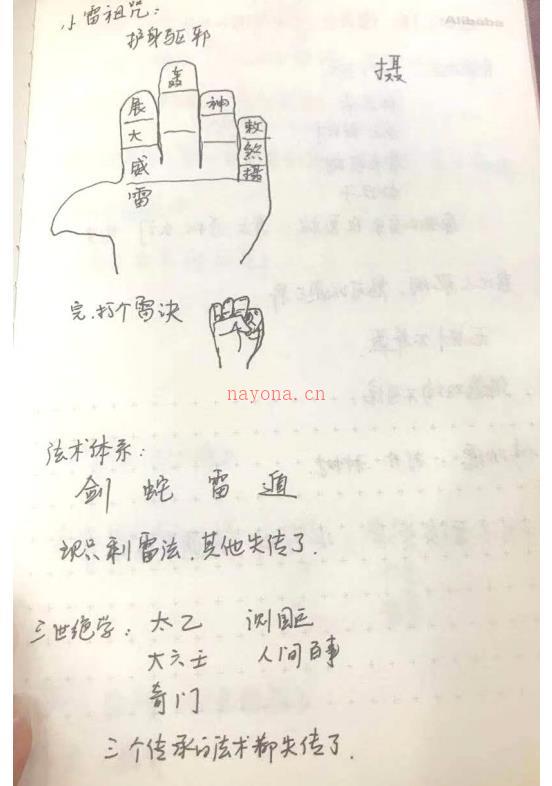 小雷祖咒：
护身驱邪
摄
轰
展
神
大
敕
煞
威
摄
雷
完，打个雷决
nayona.cn
法术体系：
剑 蛇 雷 遁
现只剩雷法，其他失传了．
三世绝学：太乙 测国运
大六壬 人间百事
奇门
三个传承的法术都失传了．